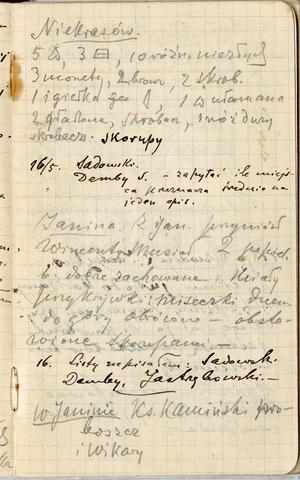 Niekrasów.
5 △, 3 ▭, 10 różn. niezłych
3 monety, 2 bronz, 2 skrob.
1 igiełka, 1 △ ułamana
2 gładzone, skrobacz, 1 nóż duży
skrobacz. Skorupy
16/5. Sadowski.
Demby S. – zapytać ile miejs-
ca przeznacza średnio na
jeden opis.
Janina. Z Jan. przyniósł
Wincenty Musiał 2 popiel.
b. dobrze zachowane. Miały
przykrywki: miseczki dnem
do góry obrócone – obsta-
wione skorupami. –
16. Listy napisałem: Sadowski
Demby, Jastrzębowski. –
W Janinie Ks. Kamiński pro-
boszcz
i Wikary